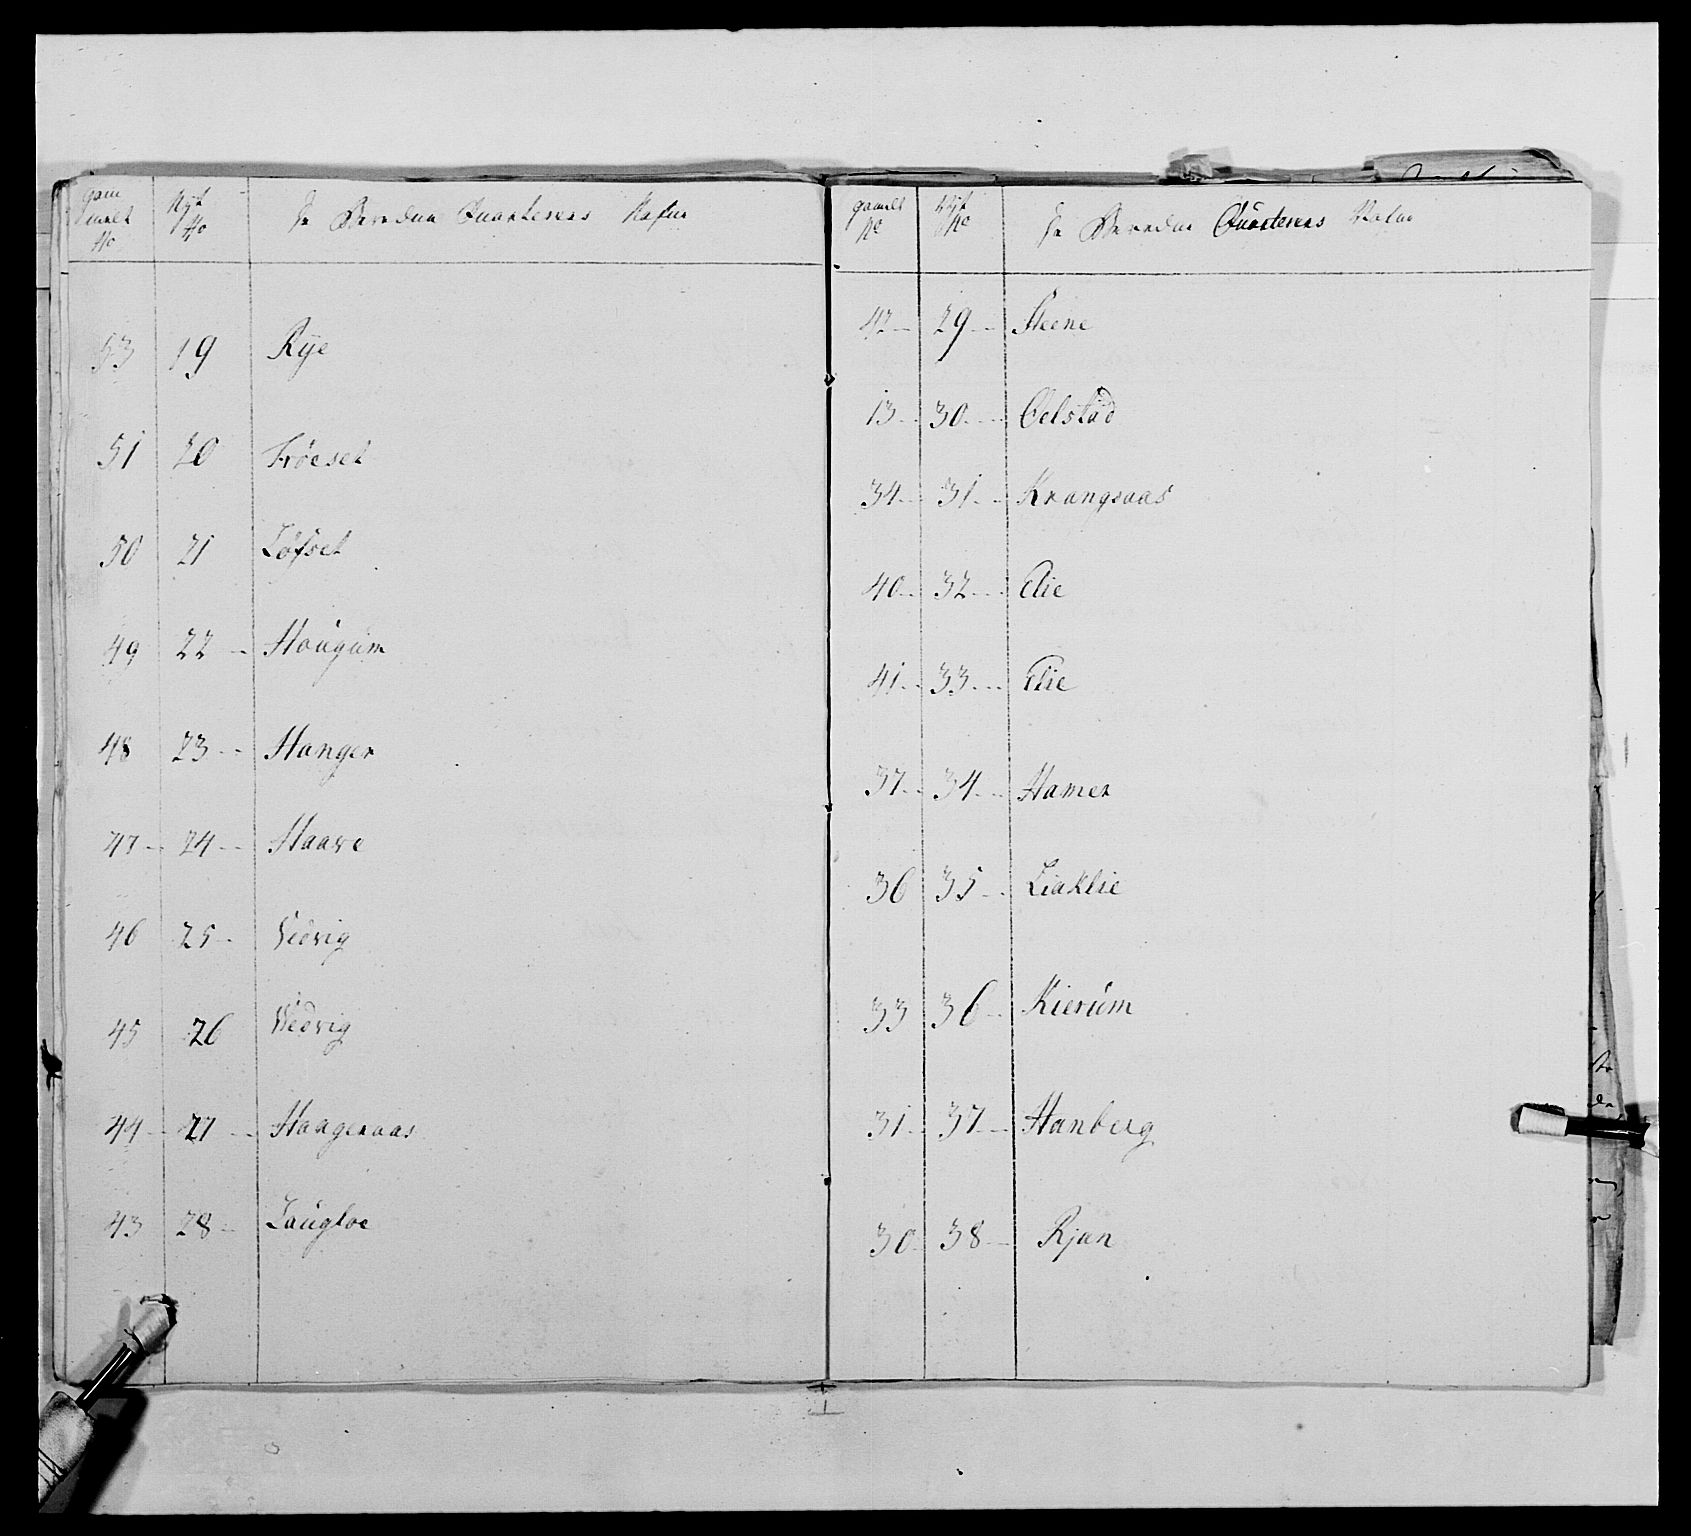 gam
gamlt Nyt
No No De Beredne Quarterers Nafne
53 19 Rÿe
51 20 Fröeset
50 21 Löfset
49 22 Hougum
48 23 Hanger
47 24 Haave
46 25 Vedvig
45 26 Vedvig
44 27 Haageraas
43 28 Laugloe
gamlt Nyt
No No De Beredne Quarterers Nafne
42 29 Steene
13 30 Oelstad
34 31 Krangsaas
40 32 Elie
41 33 Elie
37 34 Hamer
36 35 Liaklie
33 36 Kierum
31 37 Hanberg
30 38 Rjan